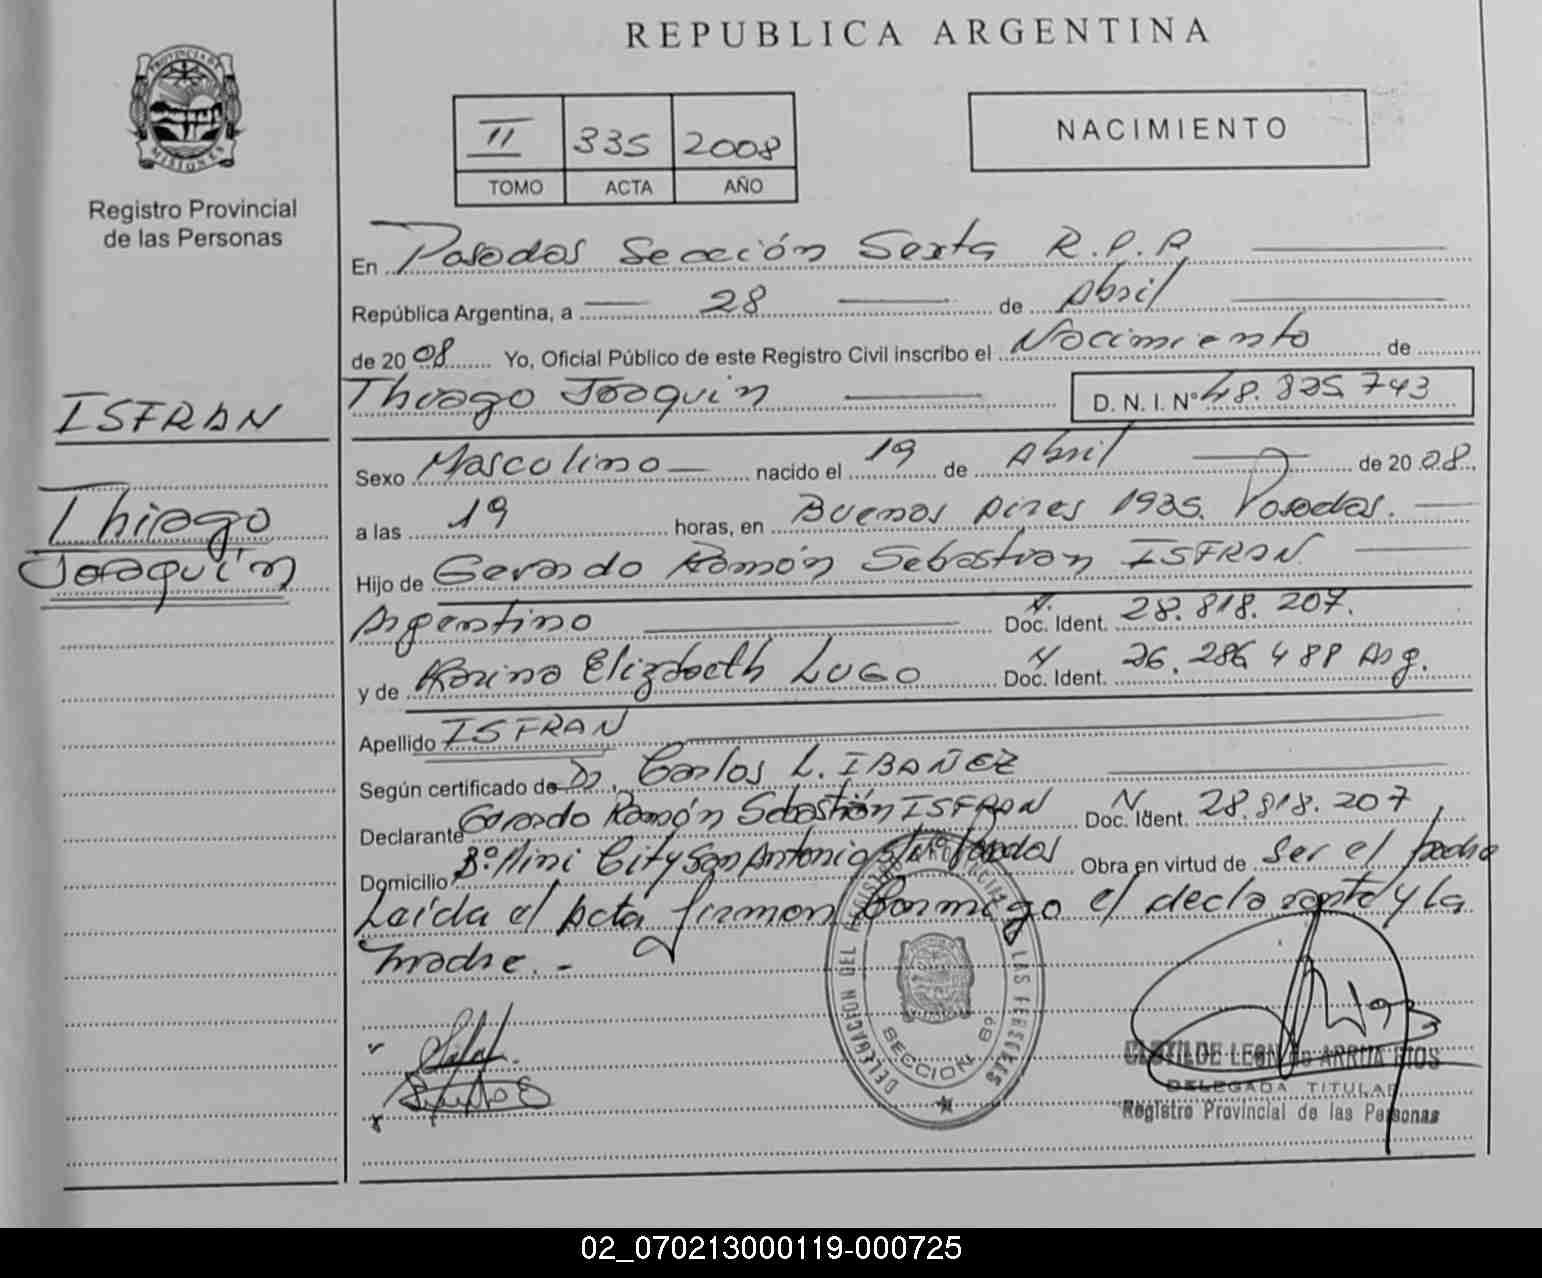 REPUBLICA ARGENTINA
PROVINCIA DE
MISIONES
Registro Provincial
de las Personas
II 335 2008
TOMO ACTA AÑO
NACIMIENTO
En Posadas Sección Sexta R.P.P.
República Argentina, a 28 de Abril
de 2008 Yo, Oficial Público de este Registro Civil inscribo el Nacimiento de
Thiago Joaquin D. N. I. Nº 48.825.743
ISFRAN
Thiago
Joaquín
Sexo Masculino nacido el 19 de Abril de 2008
a las 19 horas, en Buenos Aires 1935. Posadas.
Hijo de Gerardo Ramón Sebastian ISFRAN
Argentino Doc. Ident. 28.818.207.
y de Karina Elizabeth LUGO Doc. Ident. 26.286.488 Arg.
Apellido ISFRAN
Según certificado de Dr. Carlos L. IBAÑEZ
Declarante Gerardo Ramón Sebastián ISFRAN Doc. Ident. 28.818.207
Domicilio Bº Mini City San Antonio Posadas Obra en virtud de ser el padre
Leída el acta firman conmigo el declarante y la
madre.-
DELEGACION DEL REGISTRO PROVINCIAL DE LAS PERSONAS
SECCION 6º
CLOTILDE LEON de ARRUA
DELEGADA TITULAR
Registro Provincial de las Personas
02_070213000119-000725